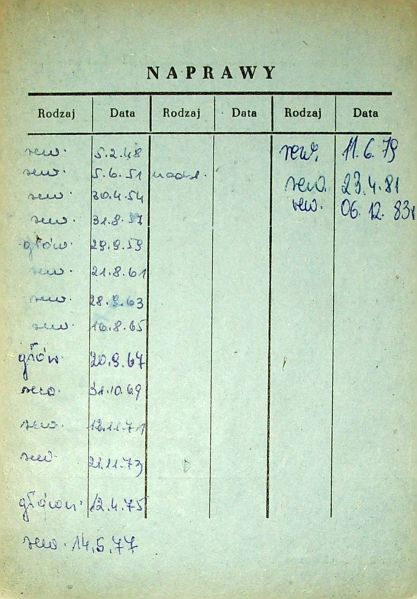 NAPRAWY
Rodzaj Data Rodzaj Data Rodzaj Data
rew. 5.2.48 rew. 11.6.79
rew. 5.6.51 rew. 23.4.81
rew. 30.4.54 rew. 06.12.83r
rew. 31.8.57
główn. 29.9.59
rew. 21.8.61
rew. 28.9.63
rew. 16.8.65
główn. 20.9.67
rew. 31.10.69
rew. 12.11.71
rew. 21.11.73
główn. 12.4.75
rew. 14.6.77